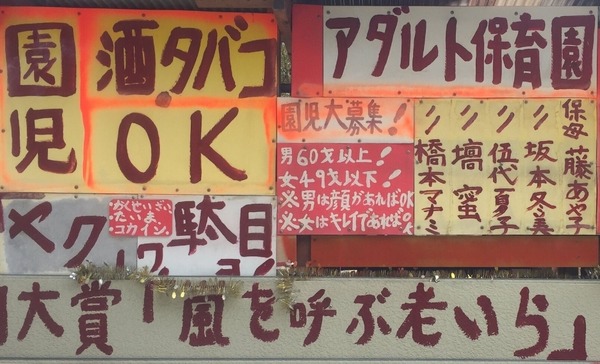 園児
酒.タバコ
OK
アダルト保育園
園児大募集!
男60才以上!
女49才以下!
※男は顔があればOK
※女はキレイであればOK
保母 藤あや子
〃 坂本冬美
〃 伍代夏子
〃 壇蜜
〃 橋本マナミ
ヤク
かくせいざい.
たいま.
コカイン.
駄目
大賞「風を呼ぶ老いら」